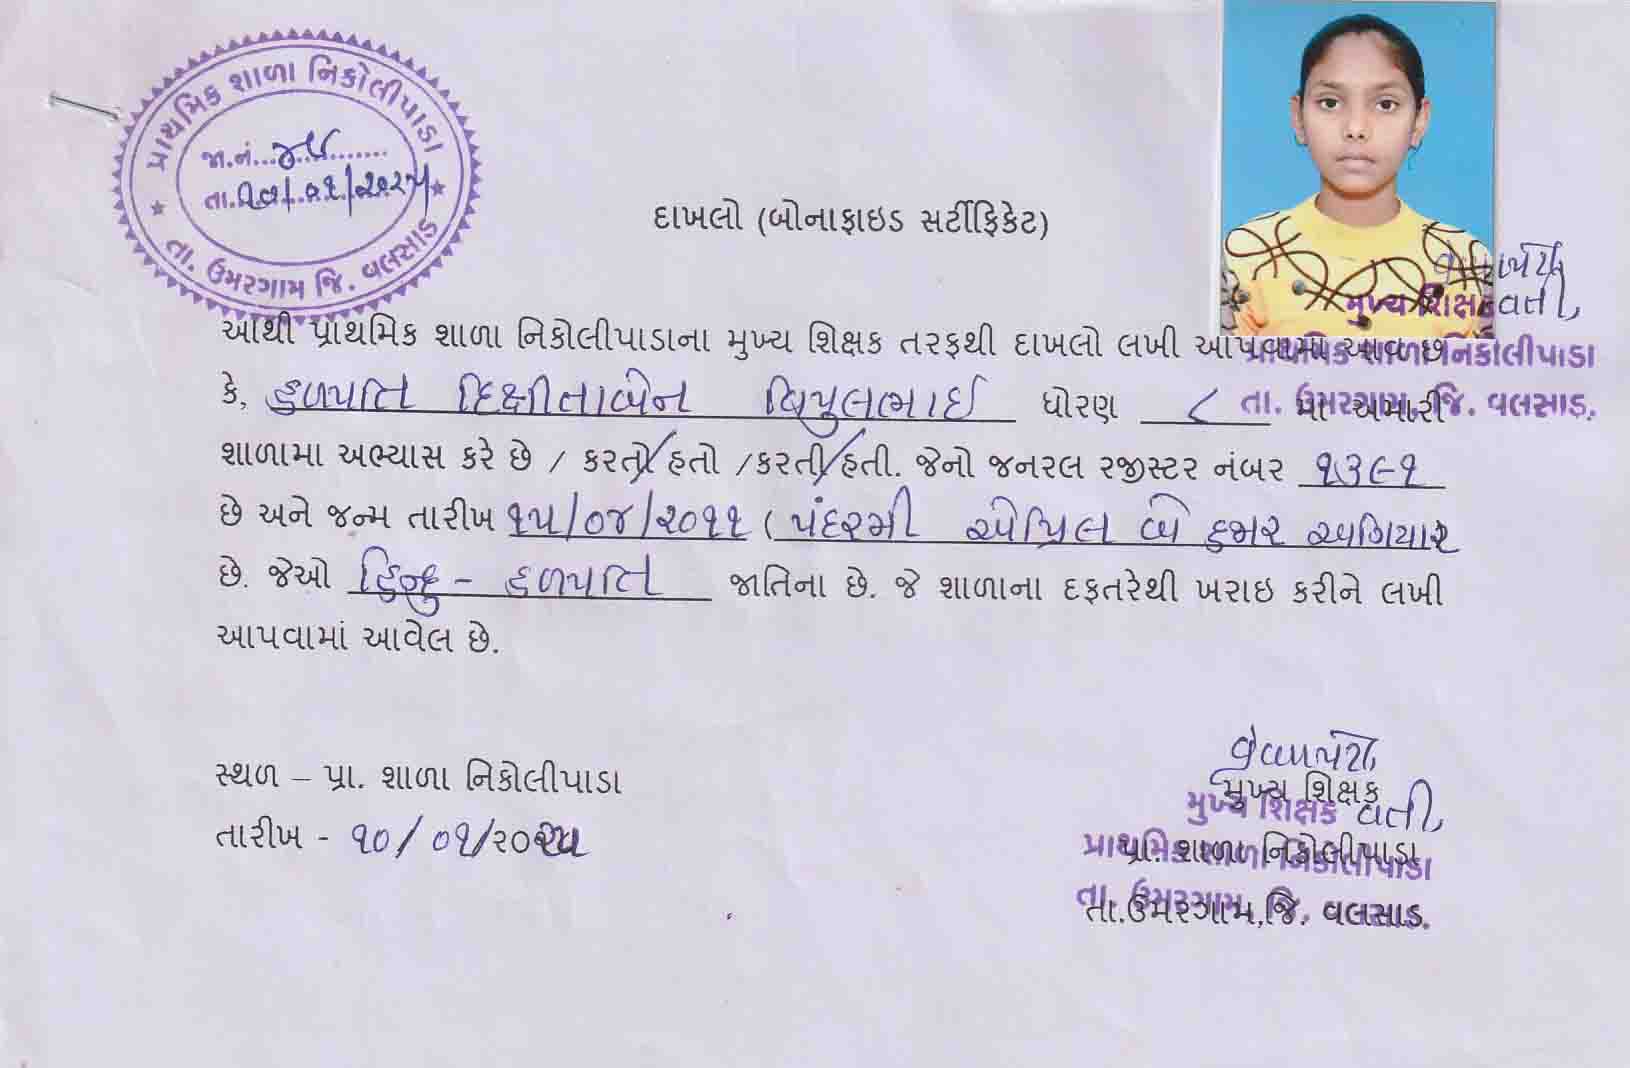 પ્રાથમિક શાળા નિકોલીપાડા
જા.નં...૪૫.......
તા.૧૦/.૦૧/૨૦૨૫
તા. ઉમરગામ જિ. વલસાડ
દાખલો (બોનાફાઇડ સર્ટીફિકેટ)
વતી,
મુખ્ય શિક્ષક
પ્રાથમિક શાળા નિકોલીપાડા
તા. ઉમરગામ, જિ. વલસાડ.
આથી પ્રાથમિક શાળા નિકોલીપાડાના મુખ્ય શિક્ષક તરફથી દાખલો લખી આપવામાં આવે છે
કે, હળપતિ દિક્ષીતાબેન વિપુલભાઈ ધોરણ ૮ મા અમારી
શાળામા અભ્યાસ કરે છે / કરતો/હતો /કરતી/હતી. જેનો જનરલ રજીસ્ટર નંબર ૧૩૯૧
છે અને જન્મ તારીખ ૧૫/૦૪/૨૦૧૧ (પંદરમી એપ્રિલ બે હજાર અગિયાર
છે. જેઓ હિન્દુ - હળપતિ જાતિના છે. જે શાળાના દફતરેથી ખરાઇ કરીને લખી
આપવામાં આવેલ છે.
સ્થળ – પ્રા. શાળા નિકોલીપાડા
તારીખ - ૧૦/૦૧/૨૦૨૫
મુખ્ય શિક્ષક
મુખ્ય શિક્ષક વતી,
પ્રા. શાળા નિકોલીપાડા
પ્રાથમિક શાળા નિકોલીપાડા
તા.ઉમરગામ,જિ. વલસાડ.
તા. ઉમરગામ, જિ. વલસાડ.